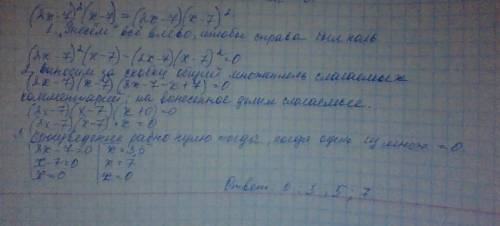 (2x-7)²(x-7) = (2x-7)(x-7)²
1. всё влево, чтобы справа был ноль
(2x-7)²(x-7) - (2x-7)(x-7)² = 0
2. выносим за скобки общий множитель слагаемых
(2x-7)(x-7)(2x-7-x+7) = 0
комментарий, на вынесенное делим слагаемые.
(2x-7)(x-7)(x+0) = 0
(2x-7)(x-7)·x = 0
3. Произведение равно нулю тогда, когда один из множ = 0.
2x-7=0 | x=3,5
x-7=0 | x=7
x=0 | x=0
Ответ 0; 3,5; 7